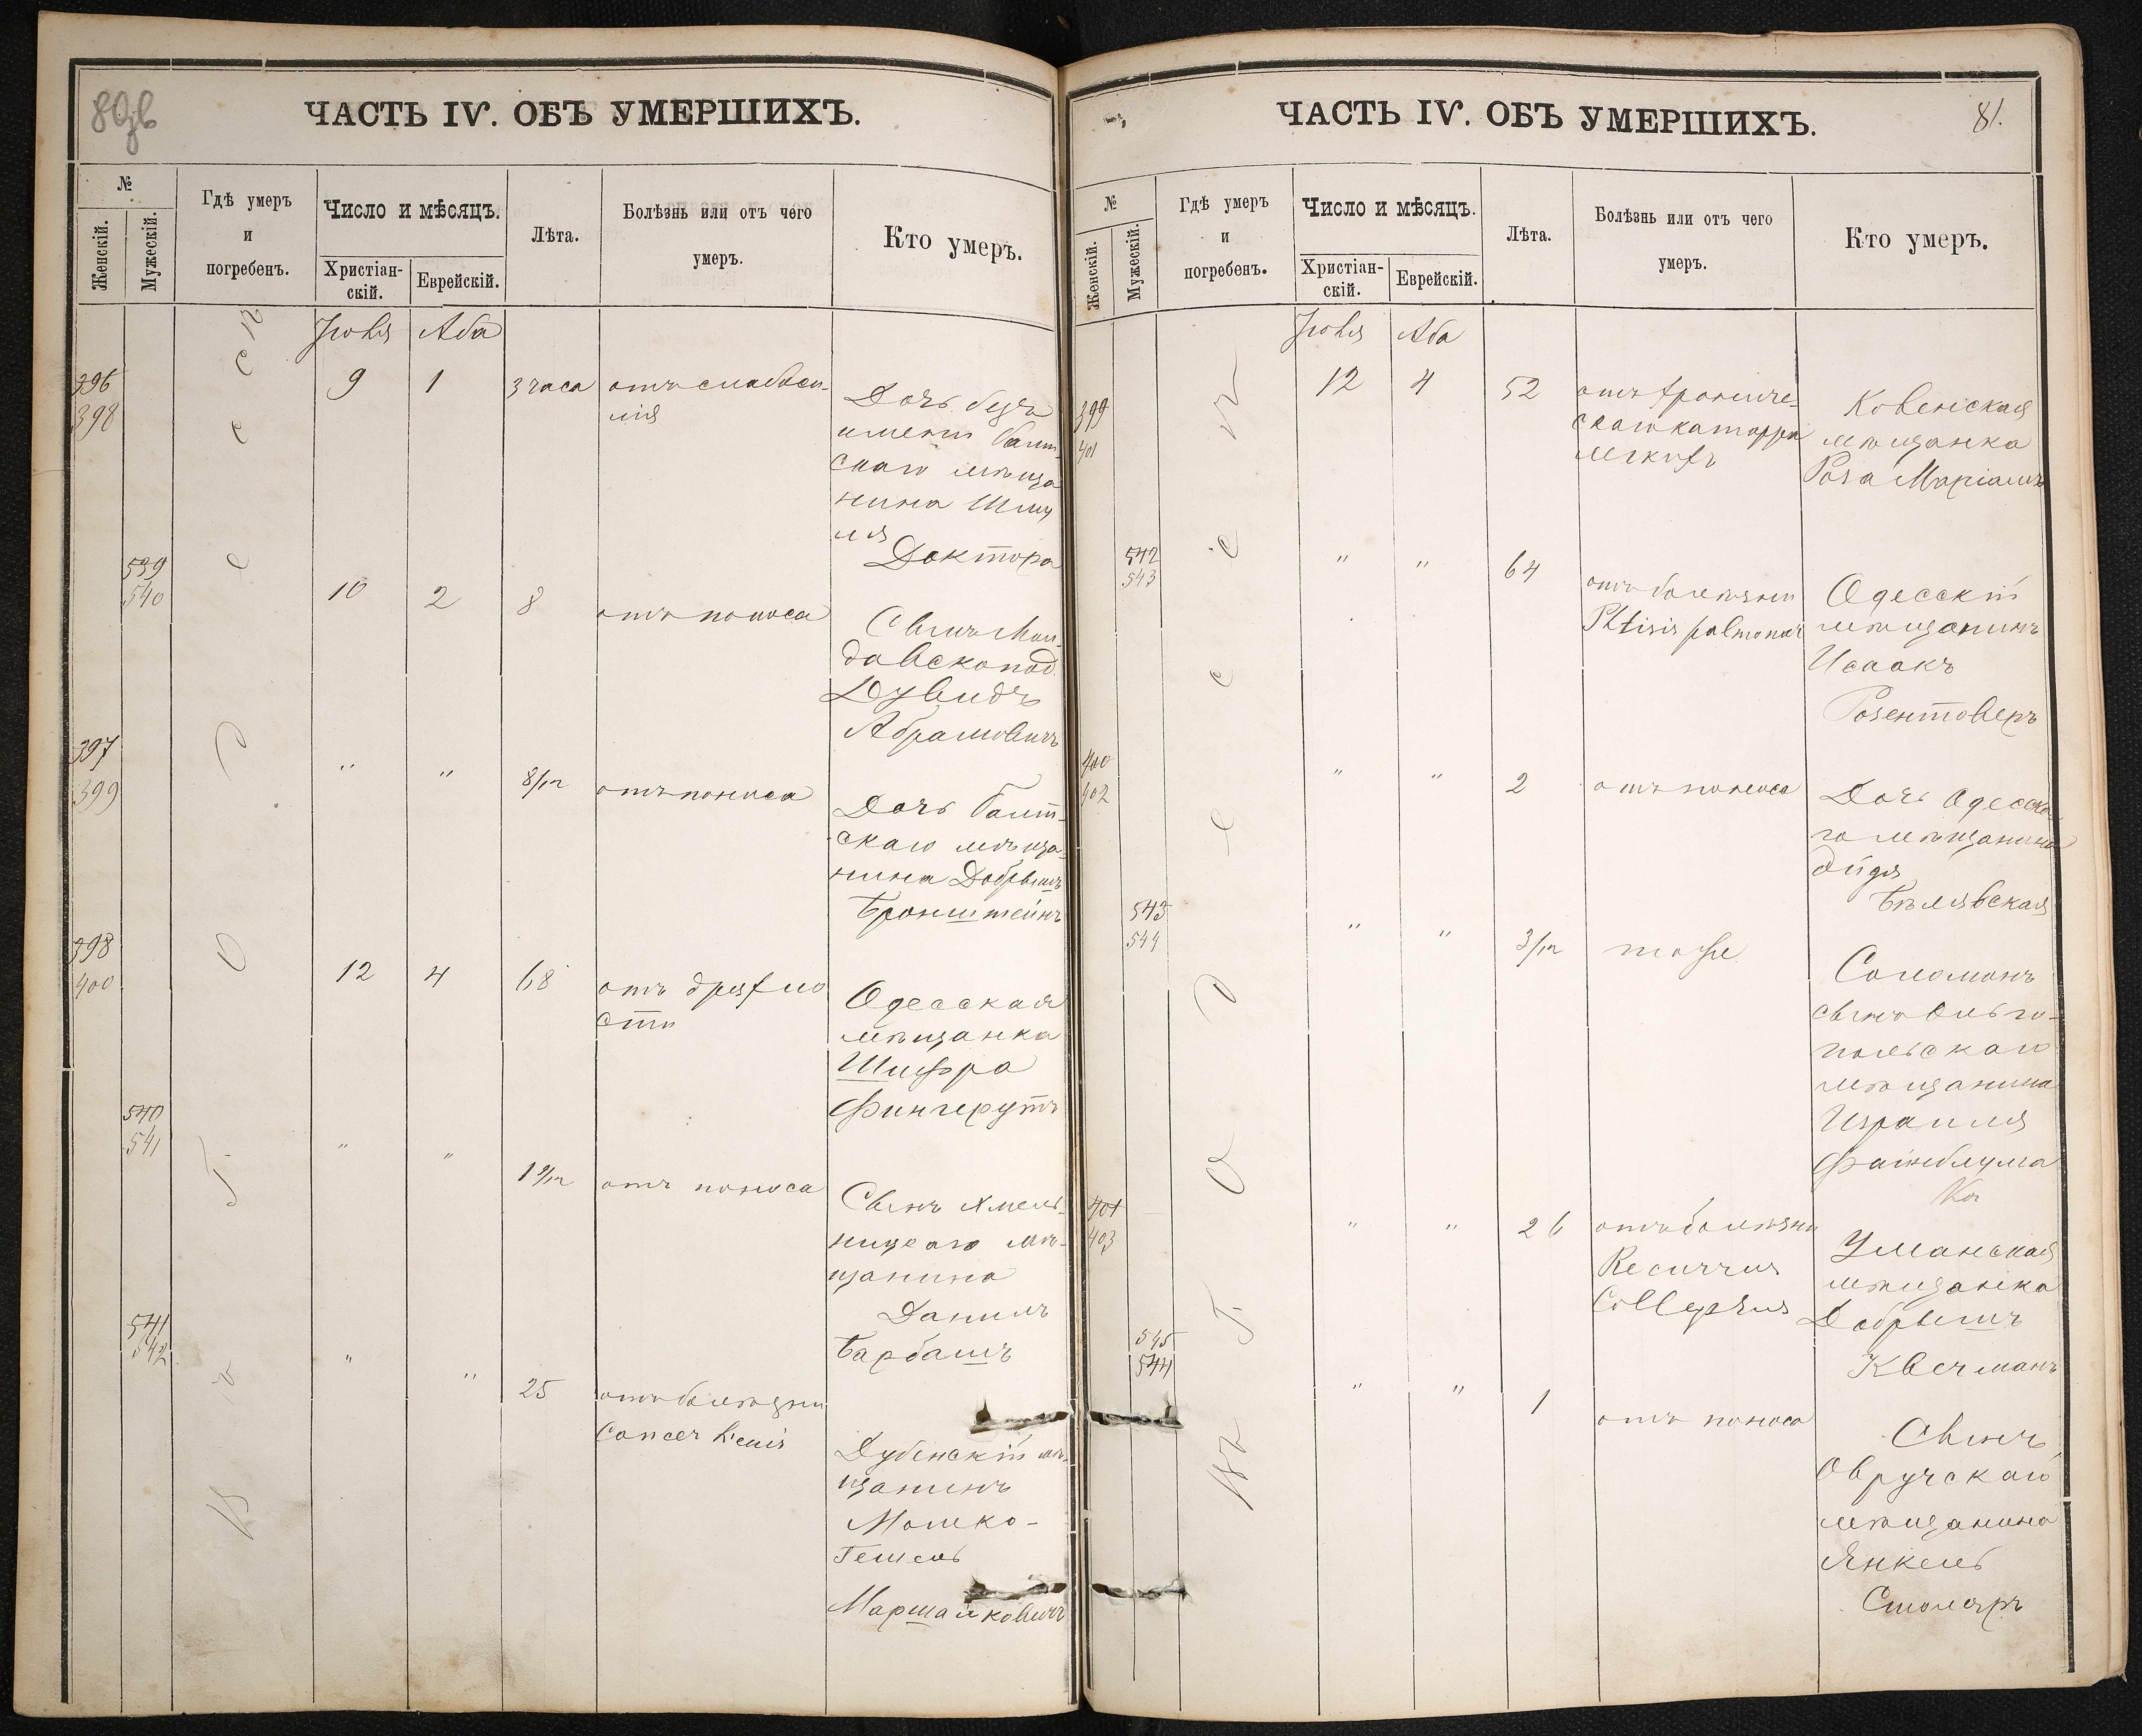 80 об
ЧАСТЬ IV. ОБЪ УМЕРШИХЪ.
№
Женскій.
Мужескій.
Гдѣ умеръ
и
погребенъ.
Число и мѣсяцъ.
Христіан-
скій.
Еврейскій.
Лѣта.
Болѣзнь или отъ чего
умеръ.
Кто умеръ.
Въ Г. Одессѣ
Іюля
Аба
396
398
9
1
3 часа
отъ слабоси-
лія
Дочь безъ
имени Балт-
скаго мѣща
нина Шму
ля
Доктора
539
540
10
2
8
отъ поноса
Сынъ Мол-
давскопод.
Дувидъ
Абрамовичъ
397
399
"
"
8/12
отъ поноса
Дочь Балт-
скаго мѣща-
нина Добрышъ
Бронштейнъ
398
400
12
4
68
отъ дряхло
сти
Одесская
мѣщанка
Шифра
Фингерутъ
540
541
"
"
1 9/12
отъ поноса
Сынъ Хмель-
ницкаго мѣ-
щанина
Данилъ
Барбашъ
541
542
"
"
25
отъ болѣзни
Cancer lienis
Дубенскій мѣ-
щанинъ
Мошко-
Гешель
Маршалковичъ
ЧАСТЬ IV. ОБЪ УМЕРШИХЪ.
81.
№
Женскій.
Мужескій.
Гдѣ умеръ
и
погребенъ.
Число и мѣсяцъ.
Христіан-
скій.
Еврейскій.
Лѣта.
Болѣзнь или отъ чего
умеръ.
Кто умеръ.
Въ Г. Одессѣ
Іюля
Аба
399
401
12
4
52
отъ хрониче-
скаго катарра
легкихъ
Ковенская
мѣщанка
Роза Маріамъ
542
543
"
"
64
отъ болѣзни
Phtisis pulmonar
Одесскій
мѣщанинъ
Исаакъ
Розентовлеръ
400
402
"
"
2
отъ поноса
Дочь Одесска
го мѣщанина
Эйдя
Бѣлявская
543
544
"
"
3/12
тоже
Соломонъ
сынъ Ольго-
польскаго
мѣщанина
Израиля
Файнблума
401
403
"
"
26
отъ болѣзни
Recurrens
Collapsus
Уманская
мѣщанка
Добрышъ
Квечманъ
545
544
"
"
1
отъ поноса
Сынъ
Овручскаго
мѣщанина
Янкель
Столяръ